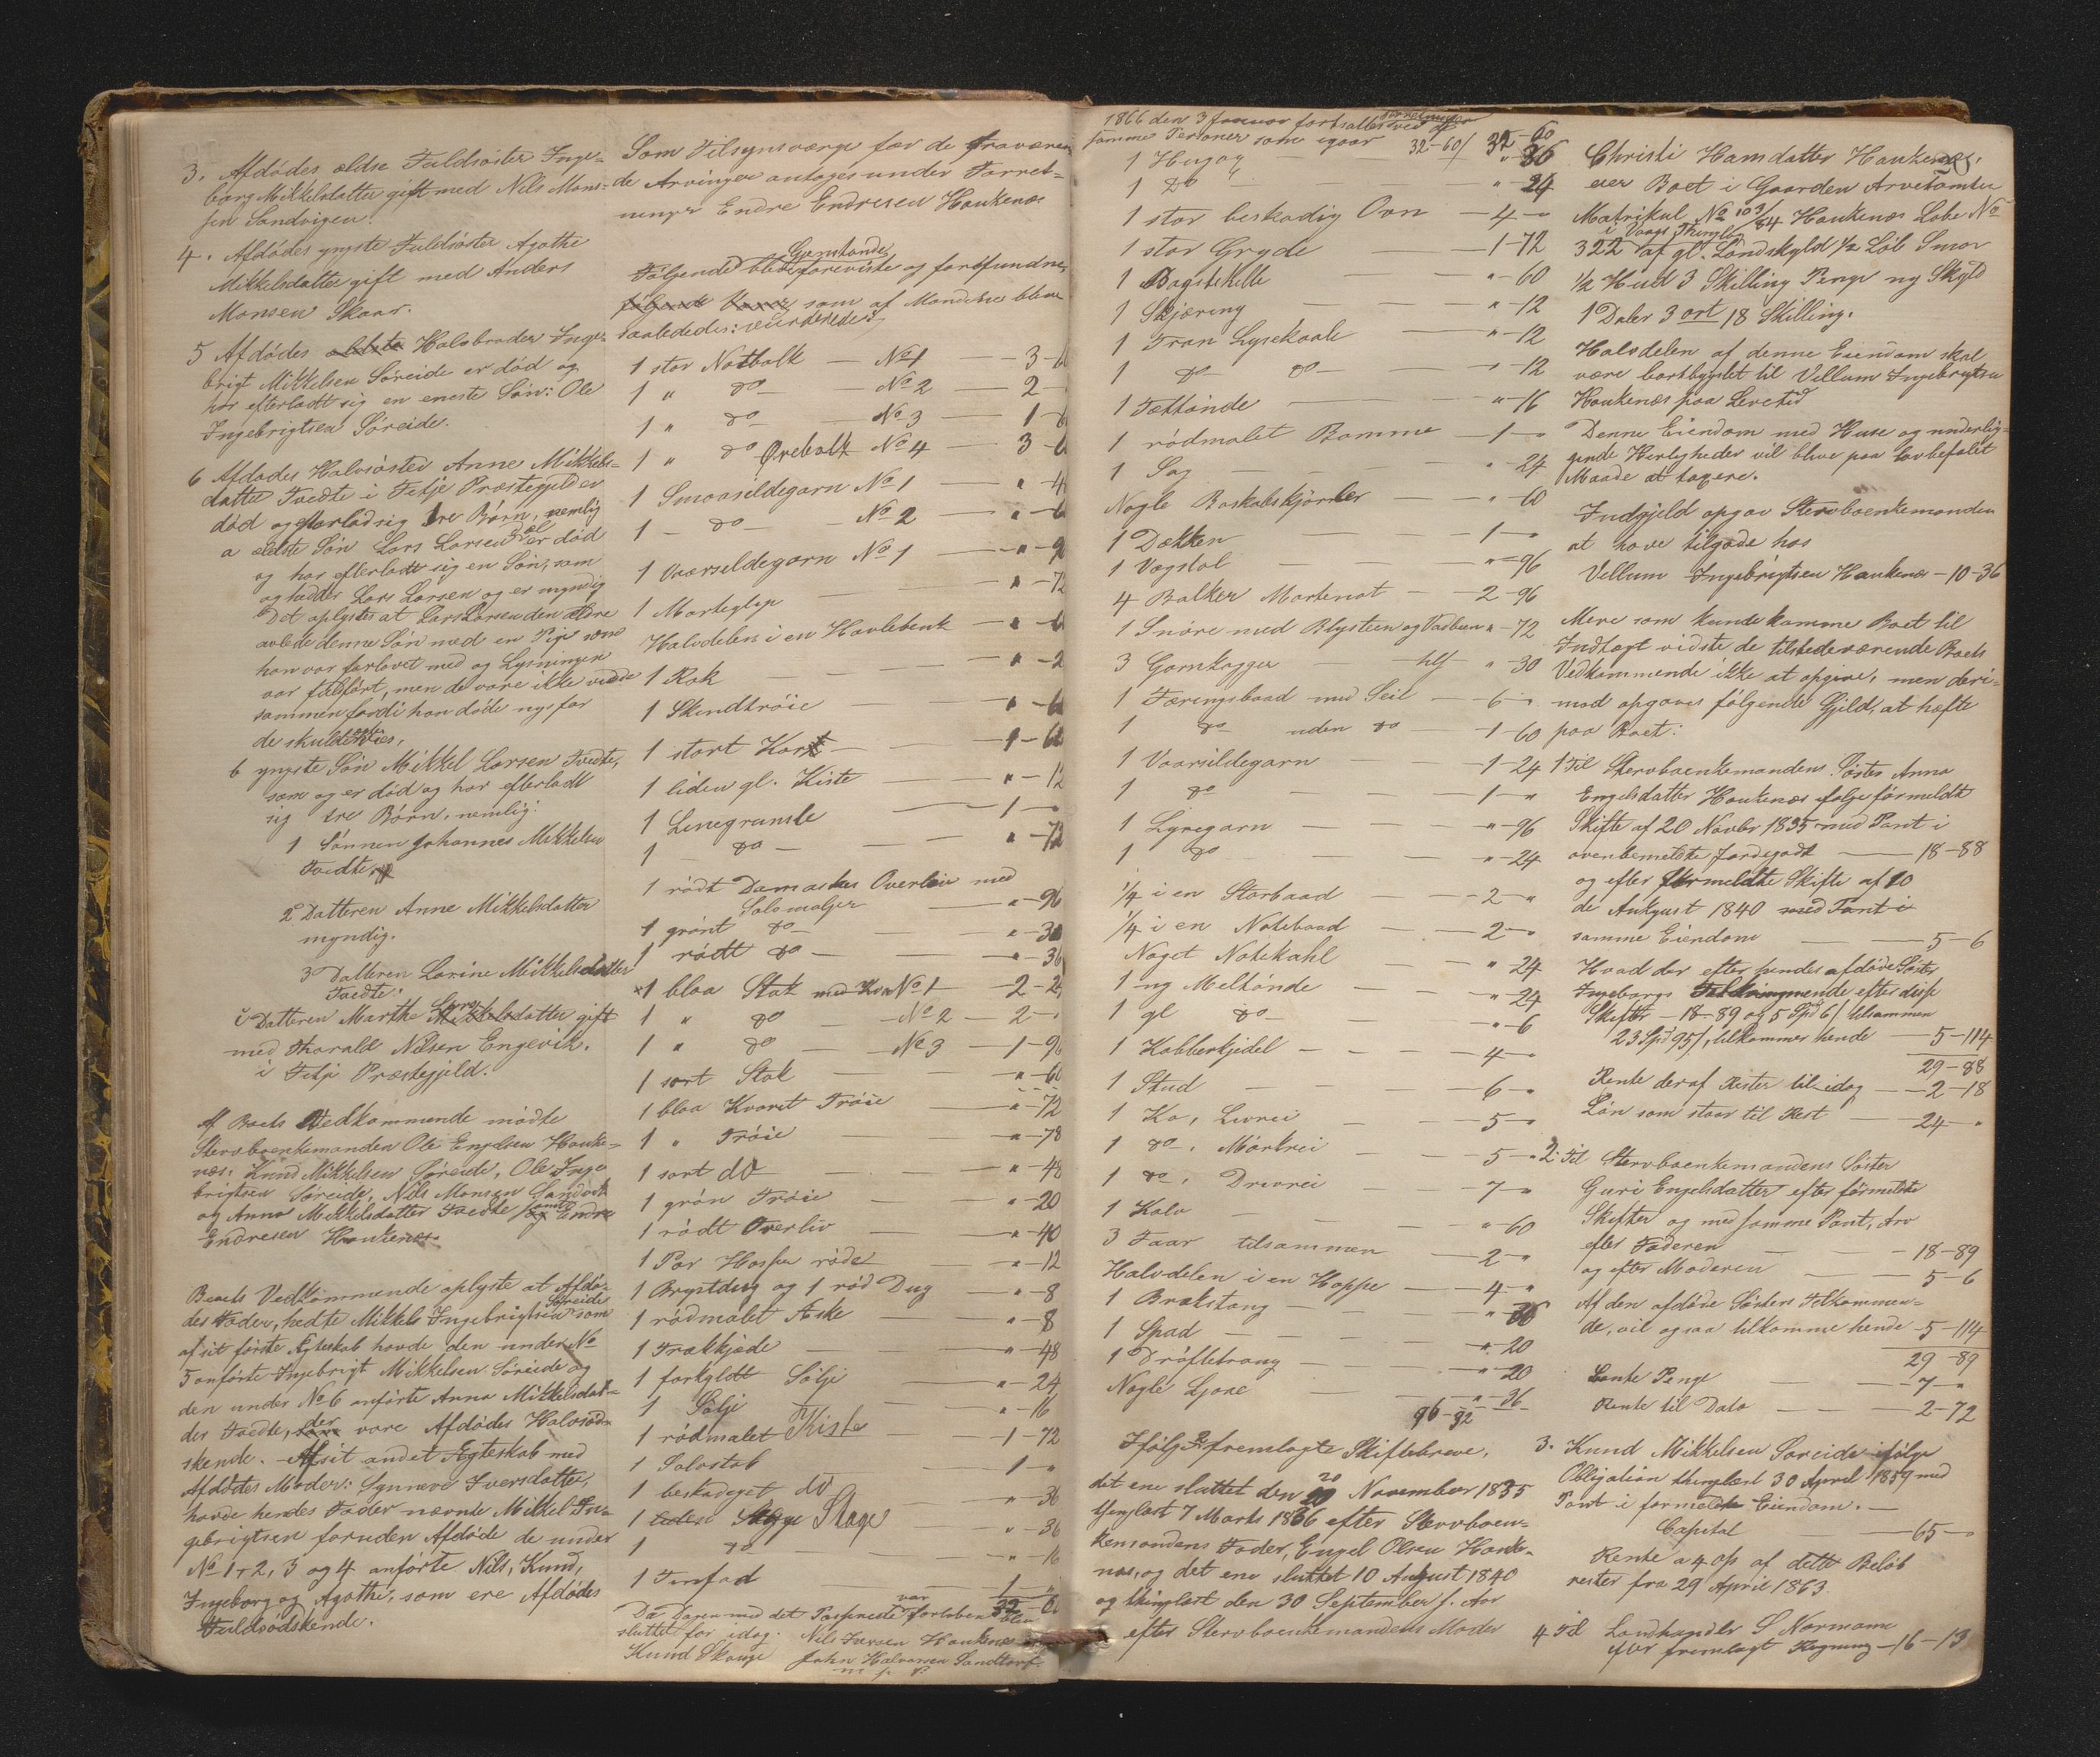 3. Afdödes ældse Fuldsöster Inge-
borg Mikkelsdatter gift med Nils Mons-
sen Sandvigen.
4. Afdödes yngste Fuldsöster Agathe
Mikkelsdatter gift med Anders
Monsen Skaar.
5 Afdödes ældste Halvbroder Inge-
brigt Mikkelsen Söreide er död og
har efterladt sig en eneste Sön: Ole
Ingebrigtsen Söreide.
6 Afdödes Halvsöster Anne Mikkels-
datter Tvedte i Fitje Præstegjeld er
död og efterlod sig tre Börn, nemlig
a ældste Sön Lars Larsen er död
og har efterladt sig en Sön, som
og hedder Lars Larsen og er myndig
Det oplystes at Lars Larsen den ældre
avlede denne Sön med en Pige som
han var forlovet med og Lysningen
var fuldfört, men de vare ikke viede
sammen fordi han döde nys för
de skulde vies.
b yngste Sön Mikkel Larsen Tvedte,
som og er död og har efterladt
sig tre Börn, nemlig:
1 Sönnen Johannes Mikkelsen
Tvedte
2 Datteren Anne Mikkelsdatter
myndig.
3 Datteren Larine Mikkelsdatter
Tvedte.
c Datteren Marthe Larsdatter gift
med Harald Nilsen Engevik.
i Fitje Præstegjeld.
Af Boets Vedkommende mödte
Stervboenkemanden Ole Engelsen Hauke-
næs, Knud Mikkelsen Söreide, Ole Inge
brigtsen Söreide, Nils Monsen Sandvik
og Anna Mikkelsdatter Tvedte samt Endre
Endresen Haukenæs.
Boets Vedkommende oplyste at Afdö-
des Fader, hedte Mikkel Ingebrigtsen Söreide som
af sit förste Ægteskab havde den under No
5 anförte Ingebrigt Mikkelsen Söreide og
den under No 6 anförte Anna Mikkelsdat-
der Tvedte, der vare Afdödes Halvsöd-
skende. - Af sit andet Ægteskab med
Afdödes Moder: Synneve Iversdatter,
havde hendes Fader nævnte Mikkel In-
gebrigtsen foruden Afdöde de under
No 1, 2, 3 og 4 anförte Nils, Knud,
Ingeborg og Agathe, som ere Afdödes
Fuldsödskende.
Som Tilsynsværge for de fraværen
de Arvinger antoges under Forret-
ningen Endre Endresen Haukenæs
Følgende Gjenstande bleve foreviste og forefundne,
som af Mændene bleve
saaledes: vurderede:
1 stor Notbolk - No 1 - 3-
1 " do - No 2 - 2-
1 " do - No 3 - 1-
1 " do Ørebolk No 4 - 3-
1 Smaasildegarn No 1 - "-4
1 - do - No 2 - "-6
1 Vaarsildegarn No 1 - "-9
1 Morteglip - "-72
Halvdelen i en Hövlebenk - "-6
1 Rok - "-2
1 Skindtröie - "-6
1 stort Kar - 1-60
1 liden gl. Kiste - "-12
1 Linegrunsle - 1-"
1 do - "-72
1 rödt Damaskes Overliv med
Sölvmaljer "-96
1 grönt do - "-30
1 rödt do - "-36
1 blaa Stak No 1 - 2-2
1 " do - No 2 - 2-
1 " do - No 3 - 1-96
1 sort Stak - "-60
1 blaa Kvarit Tröie - "-72
1 " Tröie - "-78
1 sort do - "-48
1 grön Tröie - "-20
1 rödt Overliv - "-40
1 Par Hosper röde - "-12
1 Brystdug og 1 röd Dug - "-8
1 rödmalet Aske - "-8
1 Trækkjæde - "-48
1 forgyldt Sölje - "-24
1 Sölje - "-16
1 rödmalet Kiste - 1-72
1 Solvstob - 1-"
1 beskadiget do - "-36
1 Stage - "-36
1 do - "-16
1 Tinfad - 1-"
Da Dagen med det Passerede var forloben blev
sluttet for idag. Nils Iversen Haukenæs
Knud Skauge John Halvorsen Sandtorv
m. f. P.
1866 den 3 Januar fortsattes Forretningen ved de
samme Personer som igaar 32-60/ 32-60
1 Hugøg - "-36
1 do - "-24
1 stor beskadig Ovn - 4-"
1 stor Gryde - 1-72
1 Bagstekelle "-60
1 Skjæring - "-12
1 Tran Lysekaale - "-12
1 do do - "-12
1 Tættönde - "-16
1 rödmalet Bomme - 1-"
1 Sag - "-24
Nogle Boskabskjörrler - "-60
1 Dækken - 1-"
1 Vægstol - "-96
4 Bolker Mortenot - 2-96
1 Snöre med Blysteen og Vadbeen "-72
3 Garnkagger - "-30
1 Færingsbaad med Seil - 6-"
1 do uden do - 1-60
1 Vaarsildegarn - 1-24
1 do - 1-"
1 Lyregarn - "-96
1 do - "-24
1/4 i en Storbaad - 2-"
1/4 i en Notebaad - 2-"
Noget Notekahl - "-24
1 ny Meltönde - "-24
1 gl do - "-6
1 Kobberkjedel - 4-"
1 Stud - 6-"
1 Ko, Livrei - 5-"
1 do, Mörkrei - 5-"
1 do, Drivrei - 7-"
1 Kalv - "-60
3 Faar tilsammen - 2-"
Halvdelen i en Hoppe - 4-"
1 Brækstang - "-36
1 Spad - "-20
1 Dröfletrang - "-20
Nogle Ljaae - "-36-
96-92
Ifölge 2de fremlagte Skiftebreve,
det ene sluttet den 20 November 1835
thinglæst 7 Marts 1836 efter Stervboen-
kemandens Fader, Engel Olsen Hauke-
næs, og det ene sluttet 10 August 1840
og thinglæst den 30 September s. Aar
efter Stervboenkemandens Moder
Christi Hansdatter Haukenæs,
eier Boet i Gaarden Arvetomten
Matrikul No 103/84 Haukenæs Löbe No
322 i Vaags Thinglag af gl. Landskyld 1/2 Löb Smör
1/2 Hud 3 Skilling Penge ny Skyld
1 Daler 3 ort 18 Skilling.
Halvdelen af denne Eiendom skal
være bortbygslet til Villum Ingebrigtsen
Haukenæs paa Livstid
Denne Eiendom med Huse og underlig-
gende Herligheder vil blive paa lovbefalet
Maade at taxere.
Indgjeld opgav Stervboenkemanden
at have tilgode hos
Villum Ingebrigtsen Haukenæs - 10-36
Mere som kunde komme Boet til
Indtægt vidste de tilstedeværende Boets
Vedkommende ikke at opgive, men deri-
mod opgaves fölgende Gjeld, at hæfte
paa Boet:
1 Til Stervboenkemandens Söster Anna
Engelsdatter Haukenæs ifölge förmeldt
Skifte af 20 Novbr 1835 med Pant i
ovenbemeldte Jordegodt - 18-88
og efter förmeldte Skifte af 10
de Aukgust 1840 med Pant i
samme Eiendom - 5-6
Hvad der efter hendes afdöde Söster
Ingeborgs Tilkommende efter disse
Skifter - 18-89 og 5 Spd 6/ tilsammen
23 Spd 95/, tilkommer hende - 5-114
29-88
Rente deraf Rester til idag - 2-18
Lön som staar til Rest - 24-"
2. Til Stervboenkemandens Söster
Guri Engelsdatter efter förmeldte
Skifter og med samme Pant, Arv
efter Faderen - 18-89
og efter Moderen - 5-6
Af den afdöde Sösters Tilkommen-
de, vil ogsaa tilkomme hende - 5-114
29-89
Laante Penge - 7-"
Rente til Dato - 2-72
3. Knud Mikkelsen Söreide ifölge
Obligation thinglæst 30 April 1859 med
Pant i formeldte Eiendom. -
Capital - 65-"
Rente a 4 op af dette Belöb
rester fra 29 April 1863.
4 Til Landhandler S Normann
efter fremlagt Regning - 16-13